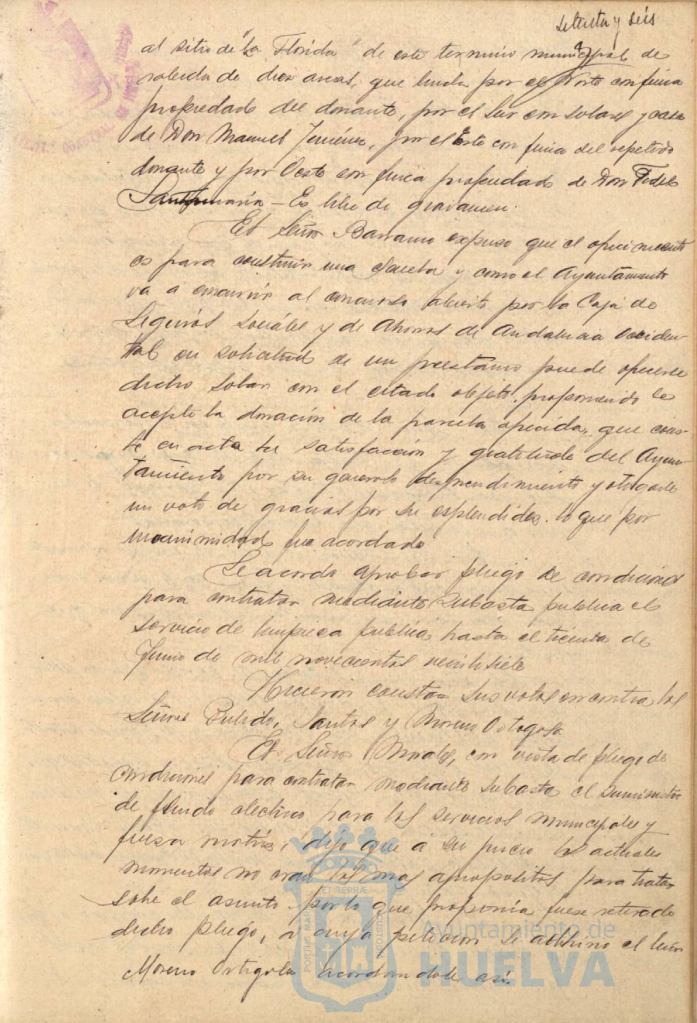 setenta y seis
al sitio de "La Florida" de este termino municipal de
cabida de diez areas, que linda por el Norte con finca
propiedad del donante, por el Sur con solares y casa
de Don Manuel Jiménez, por el Este con finca del repetido
donante y por Oeste con finca propiedad de Don Fidel
Santamaría - Es libre de gravamen.
El Señor Barranco expuso que el ofrecimiento
es para construir una Escuela y como el Ayuntamiento
va a concurrir al concurso abierto por la Caja de
Seguros Sociales y de Ahorros de Andalucia Occiden-
tal en solicitud de un prestamo puede ofrecerse
dicho solar con el citado objeto, proponiendo se
acepte la donación de la parcela ofrecida, que cons-
te en acta la satisfacción y gratitud del Ayun-
tamiento por su generoso desprendimiento y otorgarle
un voto de gracias por su esplendidez, lo que por
unanimidad fue acordado
Se acordo aprobar pliego de condiciones
para contratar mediante subasta publica el
servicio de limpieza publica hasta el treinta de
Junio de mil novecientos veintisiete
Hicieron constar sus votos en contra los
Señores Pulido, Santos y Moreno Ortegosa
El Señor con vista de pliego de
condiciones para contratar mediante subasta el suministro
de fluido electrico para los servicios municipales y
fuerza motriz, dijo que á su juicio los actuales
momentos no eran los mas aproposito para tratar
sobre el asunto por lo que proponia fuese retirado
dicho pliego, a cuya peticion se adhirio el Señor
Moreno acordandose así.
Ayuntamiento de
HUELVA